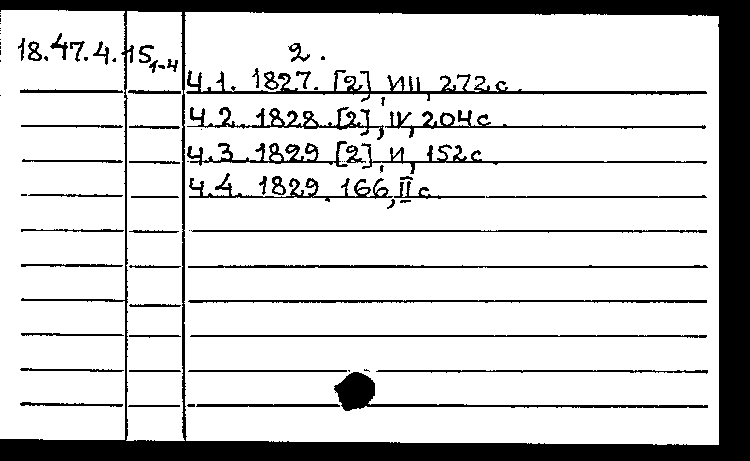 18.47.4.15 1-4
2.
Ч.1. 1827. [2], VIII, 272 с.
Ч.2. 1828. [2], IV, 204 с.
Ч.3. 1829 [2], VI, 152 с.
Ч.4. 1829. 166, II с.